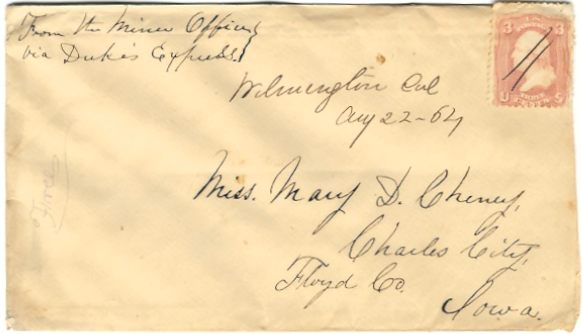 From the Miner Office
via Duke's Express.
Wilmington Cal
Aug 22-64
Miss. Mary D. Cheney,
Charles City,
Floyd Co.
Iowa.
3 3
U S